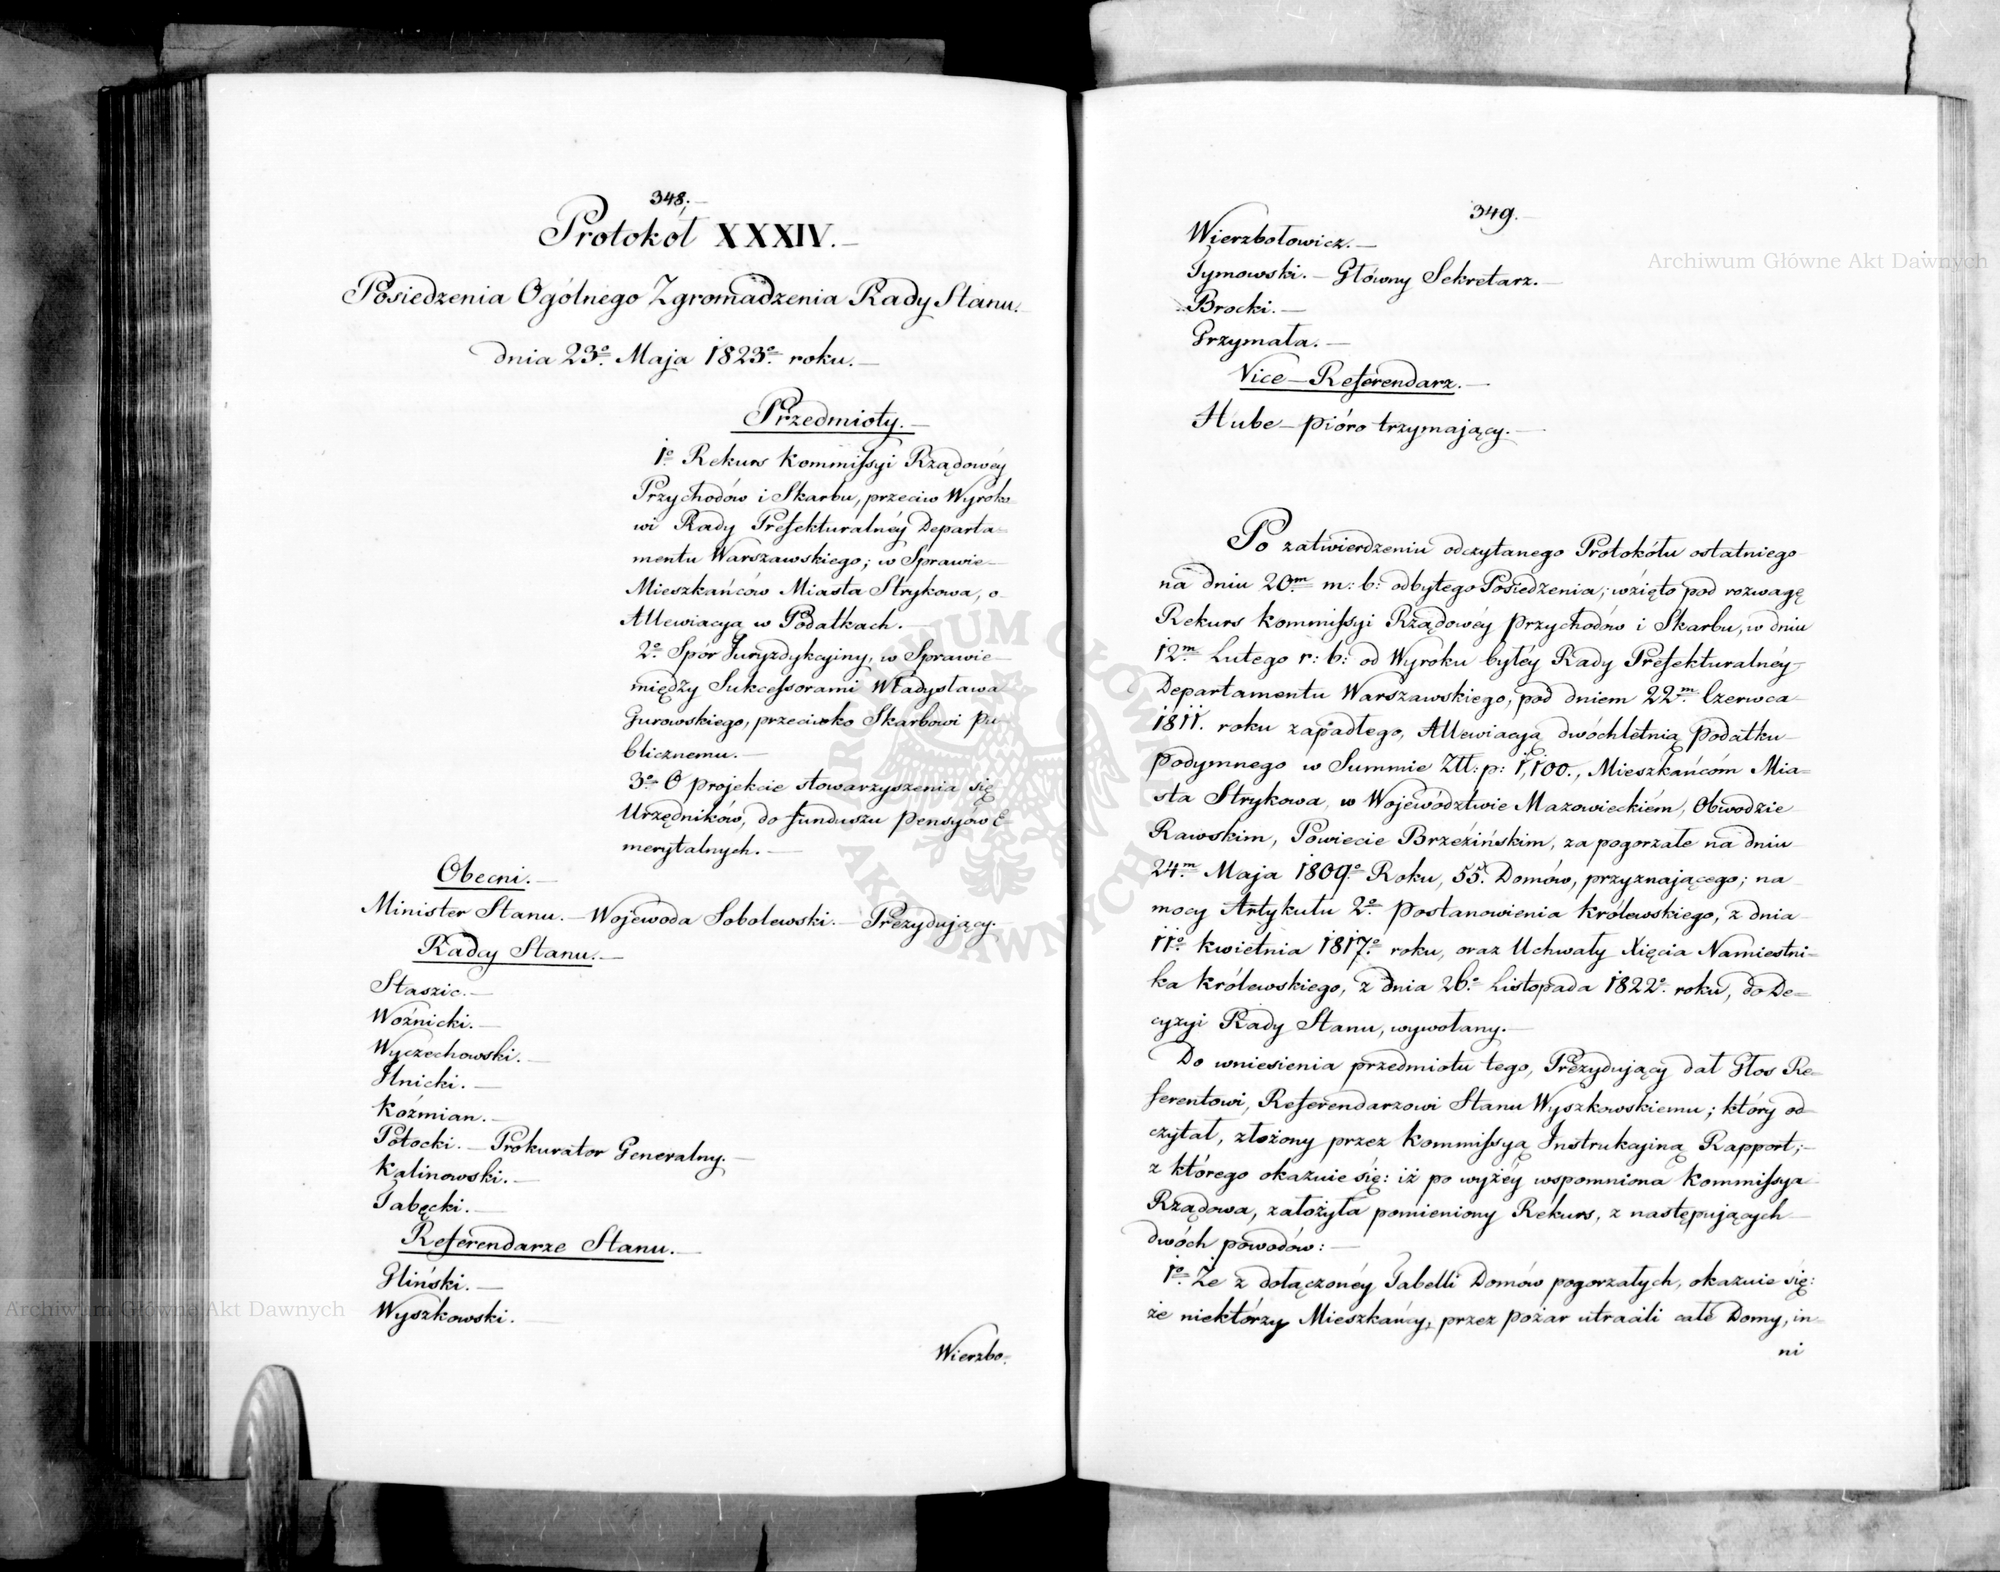 348.
Protokół XXXIV.
Posiedzenia Ogólnego Zgromadzenia Rady Stanu.
dnia 23º Maja 1823º roku.
Przedmioty.
1º Rekurs Kommissyi Rządowéy
Przychodów i Skarbu, przeciw Wyroko-
wi Rady Prefekturalnéy Departa-
mentu Warszawskiego; w Sprawie
Mieszkańców Miasta Strykowa, o
Allewiacyą w Podatkach.
2º Spór Juryzdykcyiny, w Sprawie
między Sukcessorami Władysława
Gurowskiego, przeciwko Skarbowi Pu-
blicznemu.
3º O projekcie stowarzyszenia się
Urzędników, do funduszu Pensyów E-
merytalnych.
Obecni.
Minister Stanu. – Wojewoda Sobolewski. – Prezydujący.
Radcy Stanu.
Staszic.
Woźnicki.
Wyczechowski.
Ilnicki.
Koźmian.
Potocki. – Prokurator Generalny.
Kalinowski.
Tabęcki.
Referendarze Stanu.
Gliński.
Wyszkowski.
Wierzbo-
349.
Wierzbołowicz.
Tymowski. – Główny Sekretarz.
Brocki.
Grzymała.
Vice-Referendarz.
Hube – pióro trzymający.
Po zatwierdzeniu odczytanego Protokółu ostatniego
na dniu 20m m: b: odbytego Posiedzenia; wzięto pod rozwagę
Rekurs Kommissyi Rządowéy Przychodów i Skarbu, w dniu
12m Lutego r: b: od Wyroku byłéy Rady Prefekturalnéy
Departamentu Warszawskiego, pod dniem 22m Czerwca
1811. roku zapadłego, Allewiacyą dwóchletnią Podatku
podymnego w Summie Złł: p: 1,100., Mieszkańcóm Mia-
sta Strykowa, w Województwie Mazowieckiém, Obwodzie
Rawskim, Powiecie Brzezińskim, za pogorzałe na dniu
24m Maja 1809º Roku, 55. Domów, przyznającego; na
mocy Artykułu 2º Postanowienia Królewskiego, z dnia
11º Kwietnia 1817º roku, oraz Uchwały Xięcia Namiestni-
ka Królewskiego, z dnia 26º Listopada 1822º roku, do De-
cyzyi Rady Stanu, wywołany.
Do wniesienia przedmiotu tego, Prezydujący dał Głos Re-
ferentowi, Referendarzowi Stanu Wyszkowskiemu; który od-
czytał, złożony przez Kommissyą Instrukcyiną Rapport;
z którego okazuie się: iż po wyżéy wspomniona Kommissya
Rządowa, założyła pomieniony Rekurs, z następujących
dwóch powodów:
1º Że z dołączonéy Tabelli Domów pogorzałych, okazuie się:
że niektórzy Mieszkańcy, przez pożar utracili całe Domy, in-
ni
Archiwum Główne Akt Dawnych
Archiwum Główne Akt Dawnych
ARCHIWUM GŁÓWNE AKT DAWNYCH